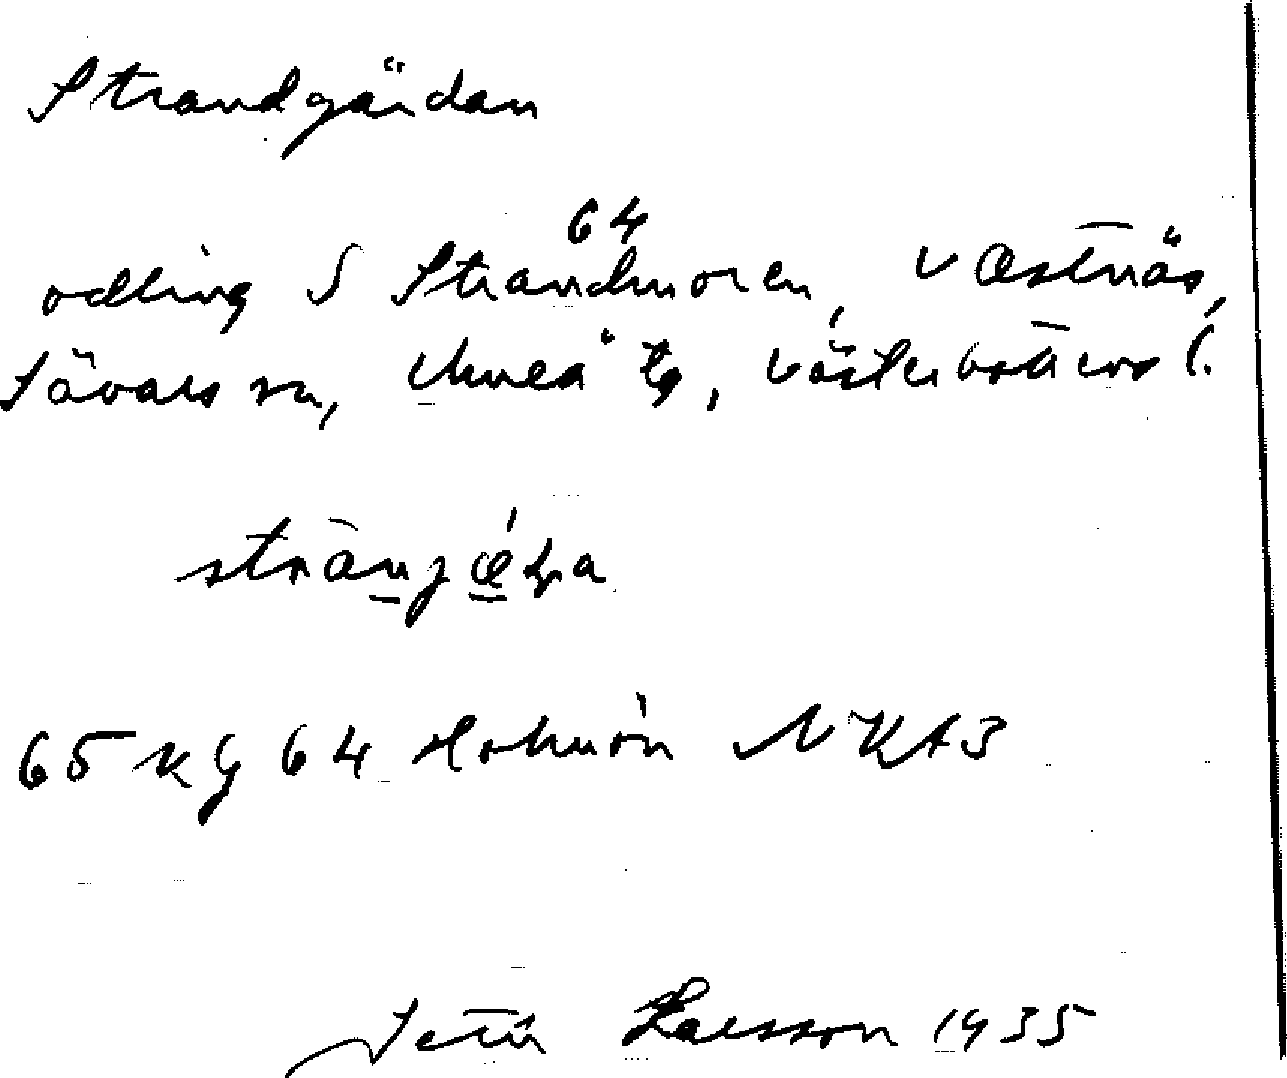 Strandgärdan
64
odling S Strandmoren, Västnäs,
Sävars sn, Umeå tg, Västerbottens l.
65 K G 64 Holmön NKAB
Seth Larsson 1935